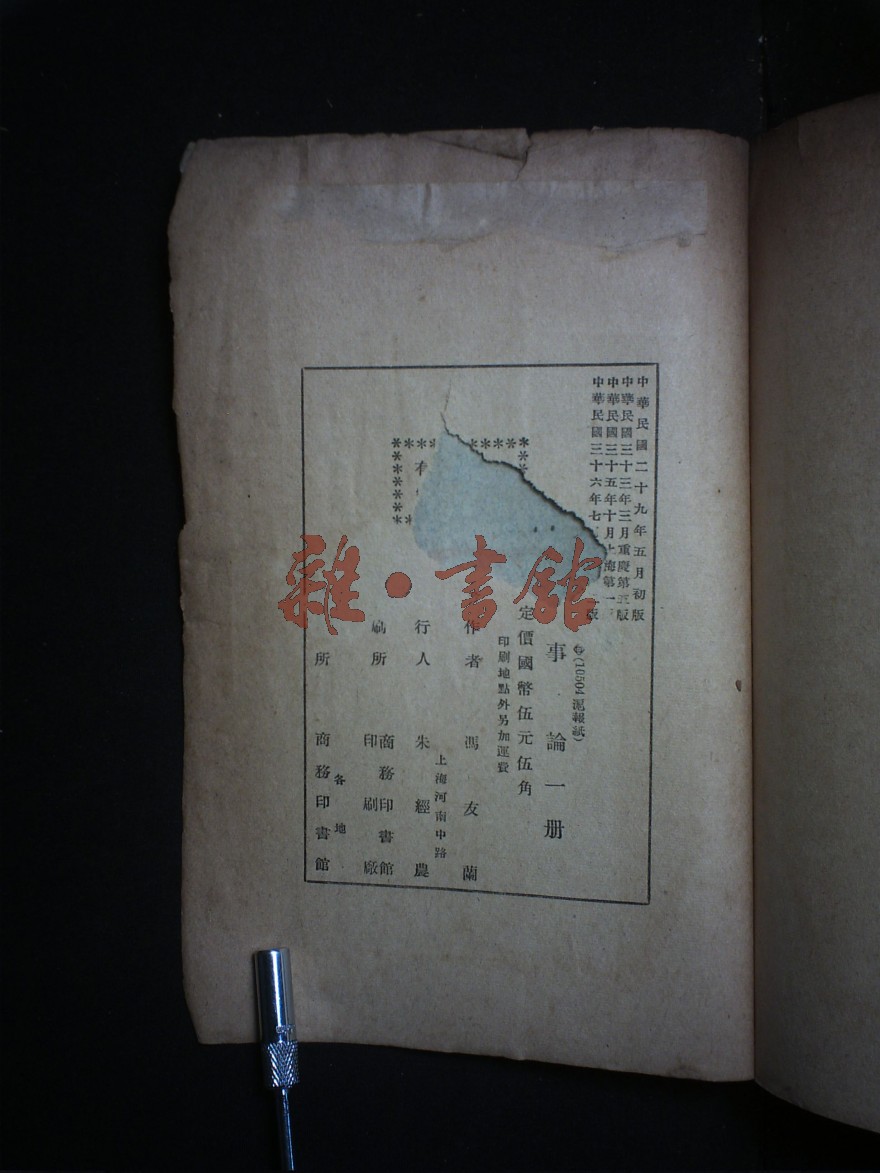 中華民國二十九年五月初版
中華民國三十三年三月重慶第三版
中華民國三十五年十月上海第一
中華民國三十六年七 版
(10504 滬報紙)
事論一册
定價國幣伍元伍角
印刷地點外另加運費
作者 馮友蘭
上海河南中路
行人 朱經農
刷所 商務印書館
印刷廠
各地
所 商務印書館
雜·書館